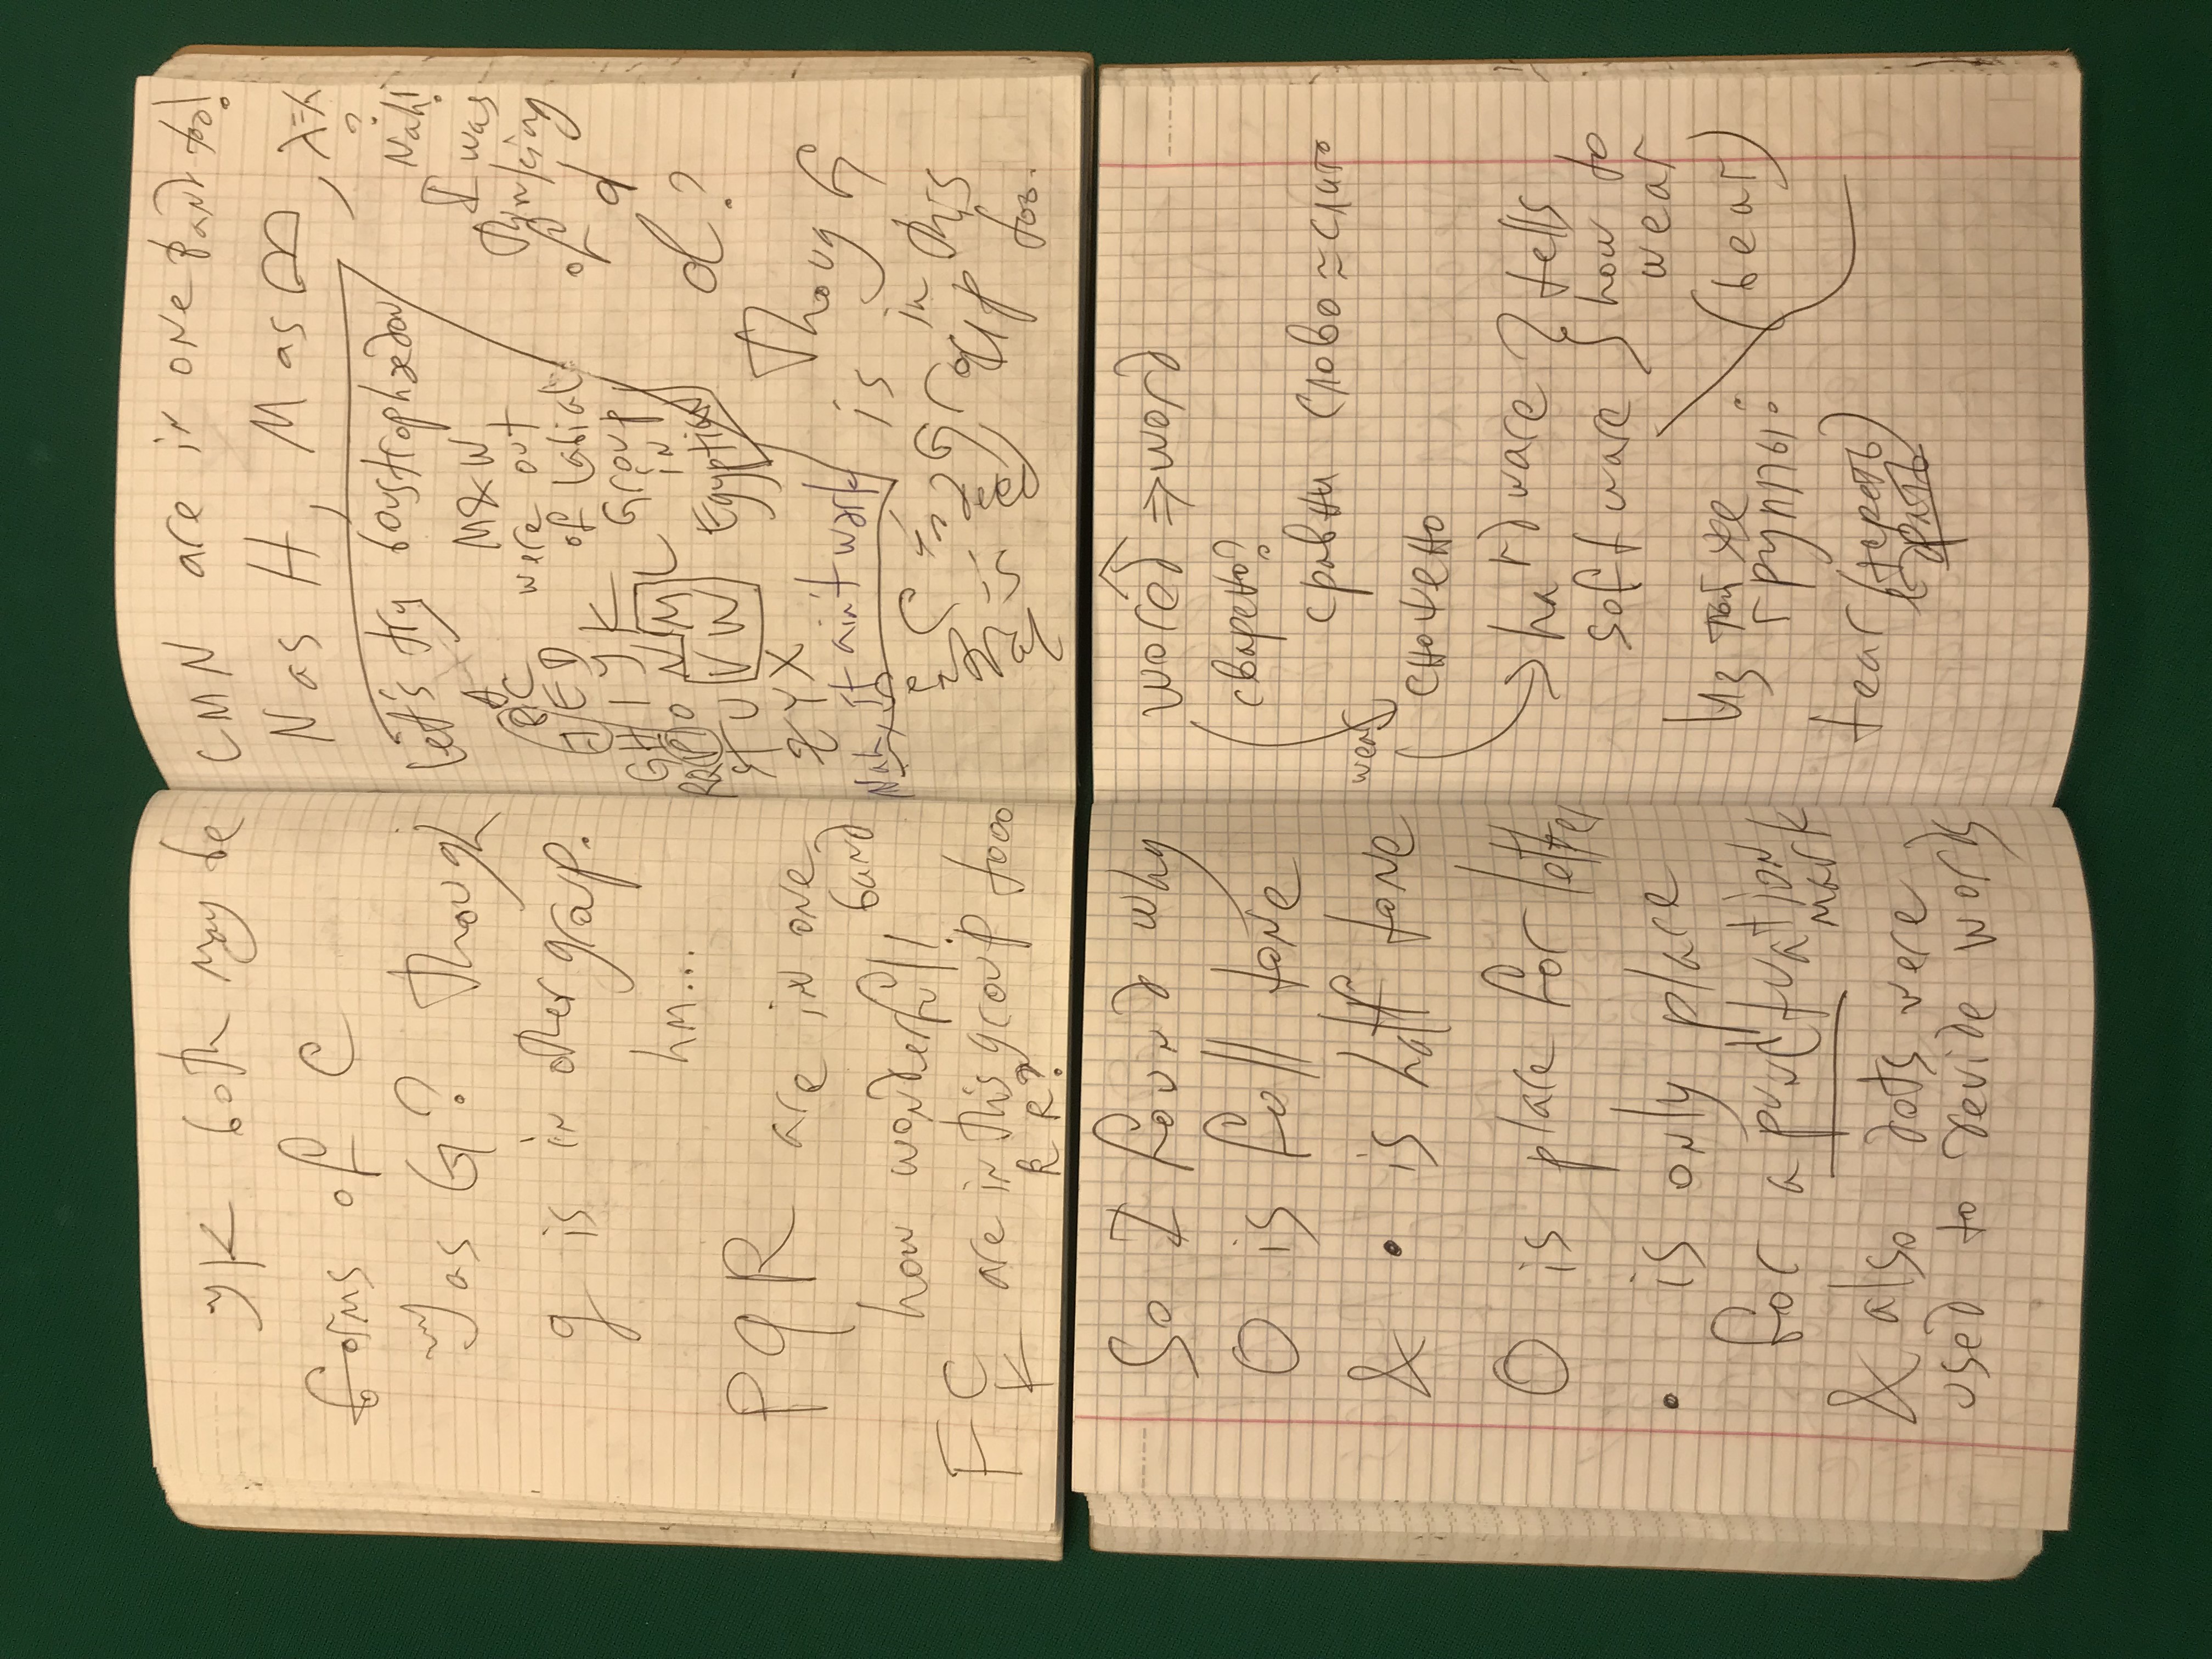 yK both may be
forms of C
y as G? Though
g is in other group.
hm...
P q R are in one
band
how wonderful!
F C are in this group tooo
K R R?
CMN are in one band too!
N as H, M as
λ = K
?
Nah!
I was
thinking
of d
d?
Though G
is in this
Group too.
C is
indeed
Let's try boustrophedon
A
BC
FED
GHIYK
RQPONML
STUVW
ZYX
M & W
were out
of labial
Group
in
Egyptian
Nah, It ain't work
So I found why
O is full tone
& • is half tone
O is place for letter
• is only place
for a punctuation
mark
& also dots were
used to devide words
wored ⇒ word
сварено?
сравни слово ≈ слито
wear
сножено
→ hardware } tells
software } how to
wear
(bear)
Из той же
группы:
tear (тереть)